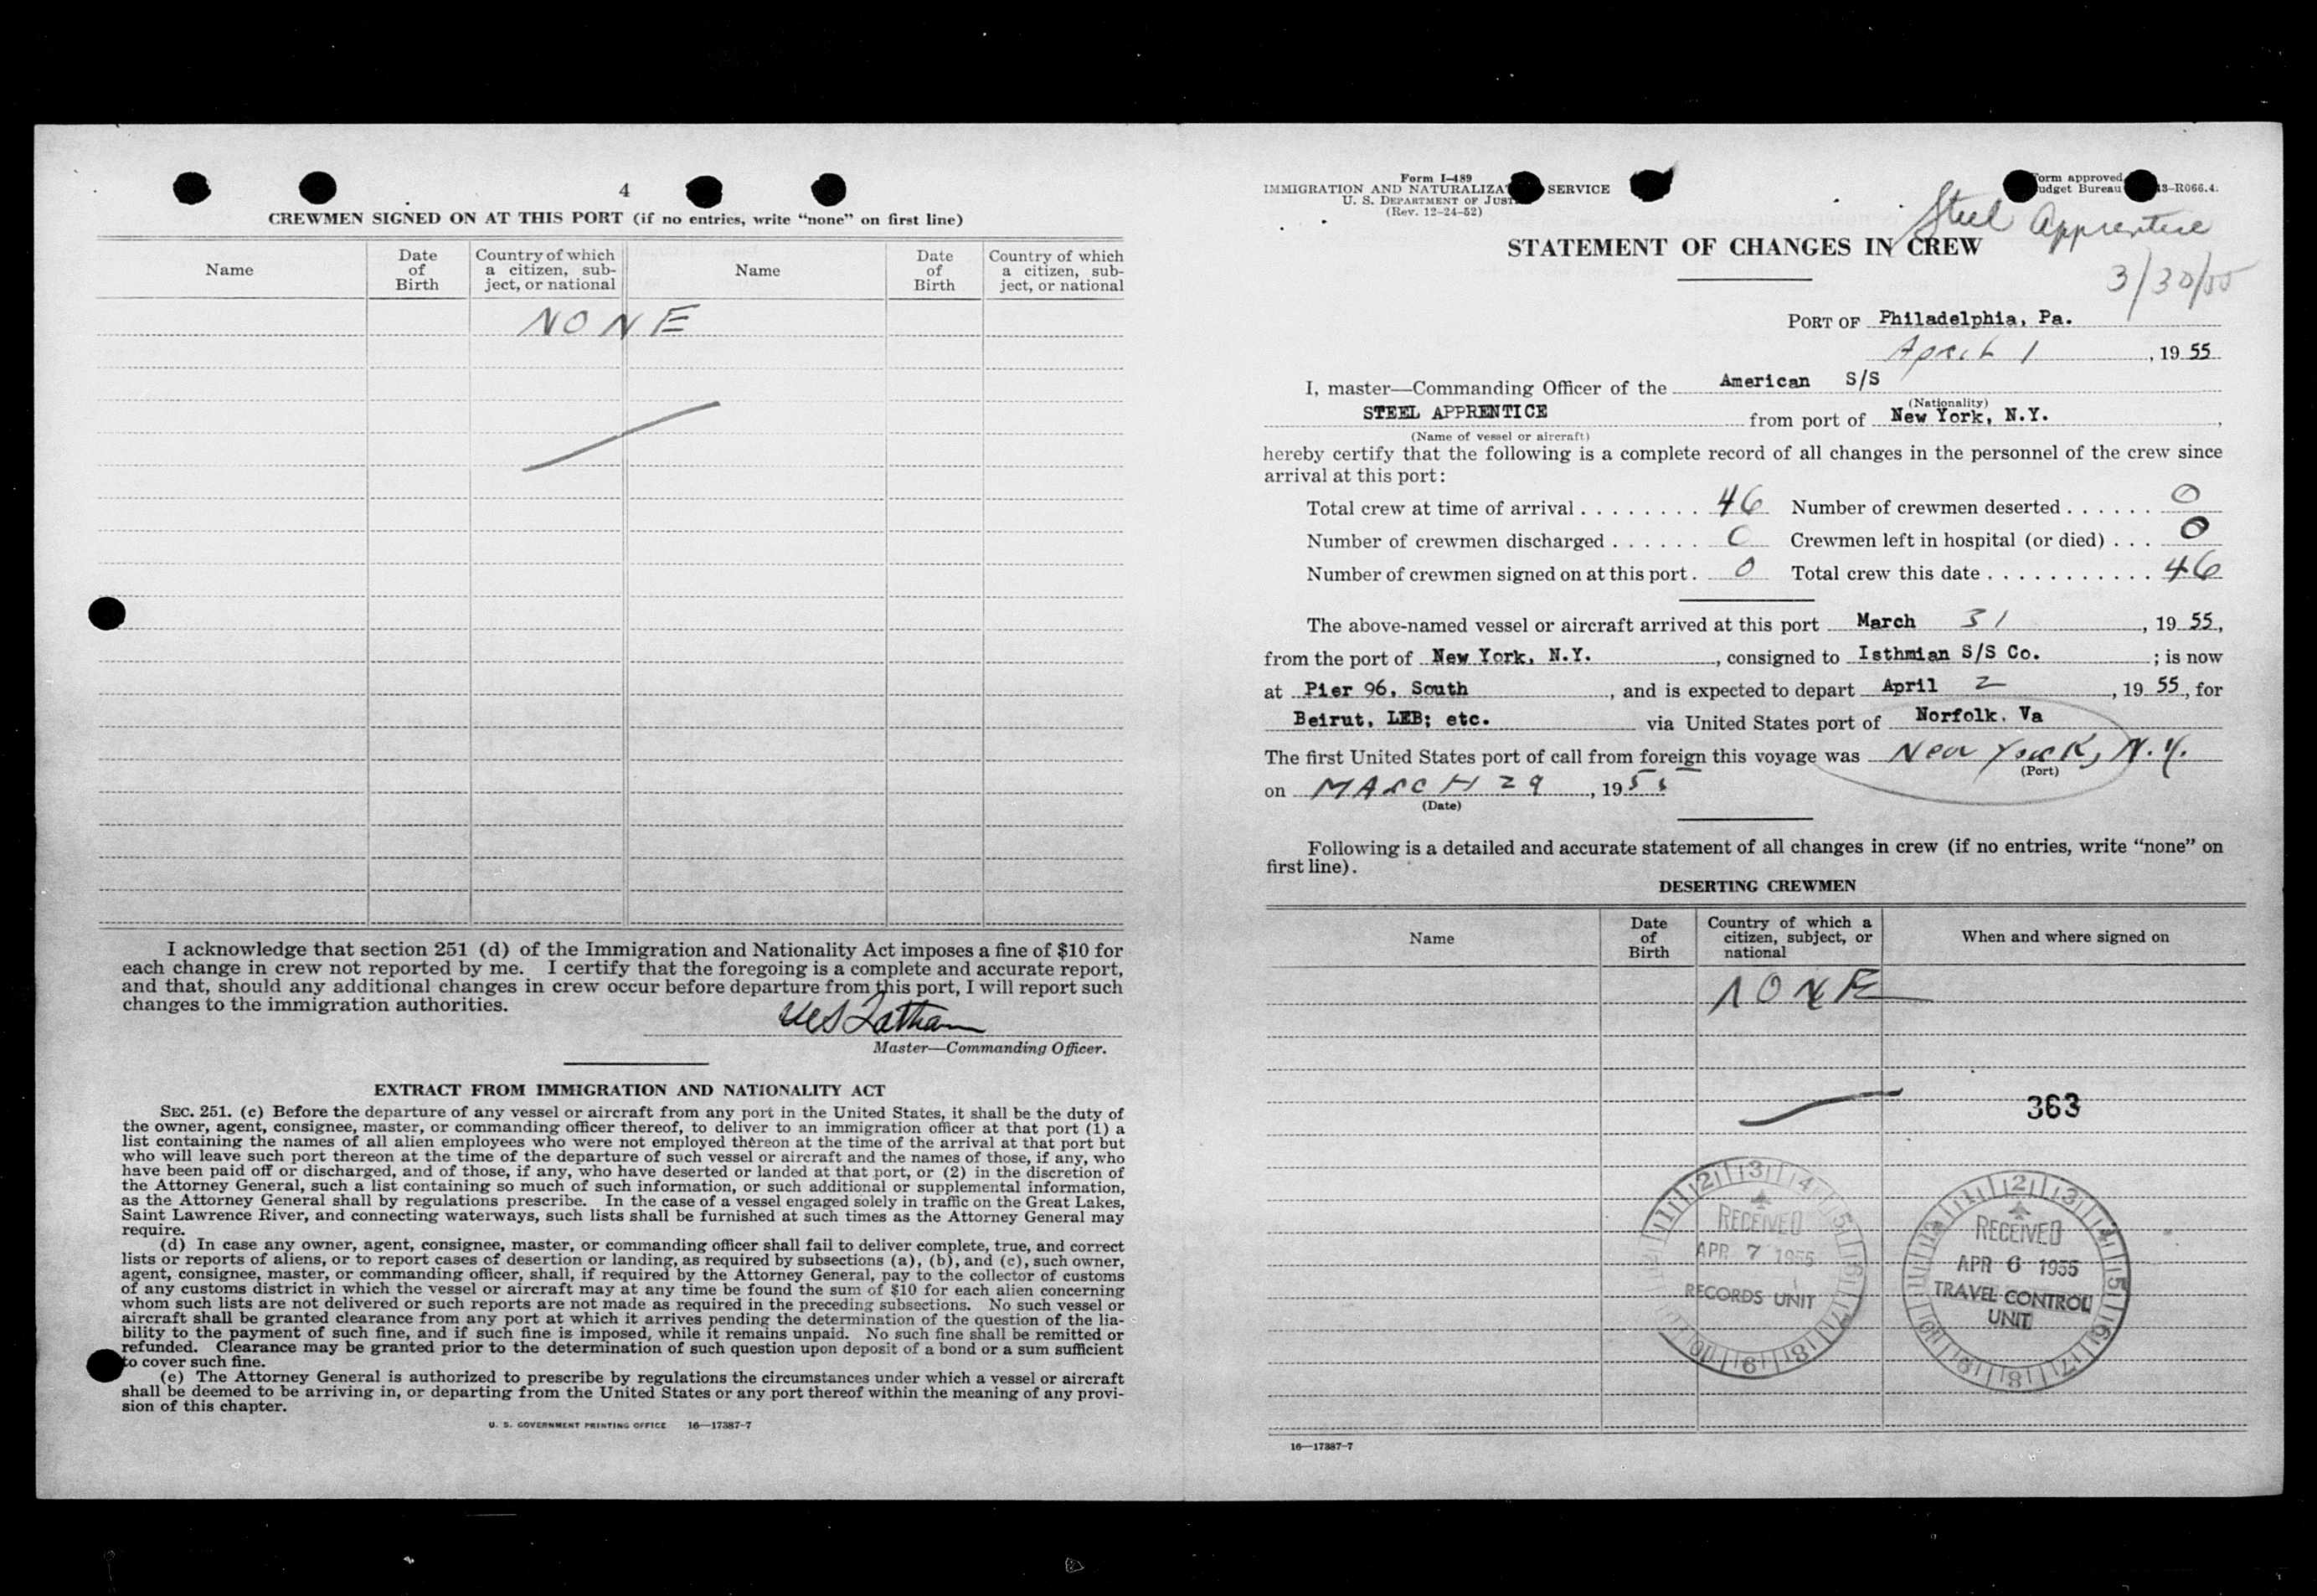 4
CREWMEN SIGNED ON AT THIS PORT (if no entries, write “none” on first line)
Name
Date of Birth
Country of which a citizen, sub-ject, or national
Name
Date of Birth
Country of which a citizen, sub-ject, or national
NONE
I acknowledge that section 251 (d) of the Immigration and Nationality Act imposes a fine of $10 for
each change in crew not reported by me. I certify that the foregoing is a complete and accurate report,
and that, should any additional changes in crew occur before departure from this port, I will report such
changes to the immigration authorities.
Latham
Master—Commanding Officer.
EXTRACT FROM IMMIGRATION AND NATIONALITY ACT
SEC. 251. (c) Before the departure of any vessel or aircraft from any port in the United States, it shall be the duty of
the owner, agent, consignee, master, or commanding officer thereof, to deliver to an immigration officer at that port (1) a
list containing the names of all alien employees who were not employed thereon at the time of the arrival at that port but
who will leave such port thereon at the time of the departure of such vessel or aircraft and the names of those, if any, who
have been paid off or discharged, and of those, if any, who have deserted or landed at that port, or (2) in the discretion of
the Attorney General, such a list containing so much of such information, or such additional or supplemental information,
as the Attorney General shall by regulations prescribe. In the case of a vessel engaged solely in traffic on the Great Lakes,
Saint Lawrence River, and connecting waterways, such lists shall be furnished at such times as the Attorney General may
require.
(d) In case any owner, agent, consignee, master, or commanding officer shall fail to deliver complete, true, and correct
lists or reports of aliens, or to report cases of desertion or landing, as required by subsections (a), (b), and (c), such owner,
agent, consignee, master, or commanding officer, shall, if required by the Attorney General, pay to the collector of customs
of any customs district in which the vessel or aircraft may at any time be found the sum of $10 for each alien concerning
whom such lists are not delivered or such reports are not made as required in the preceding subsections. No such vessel or
aircraft shall be granted clearance from any port at which it arrives pending the determination of the question of the lia-
bility to the payment of such fine, and if such fine is imposed, while it remains unpaid. No such fine shall be remitted or
refunded. Clearance may be granted prior to the determination of such question upon deposit of a bond or a sum sufficient
to cover such fine.
(e) The Attorney General is authorized to prescribe by regulations the circumstances under which a vessel or aircraft
shall be deemed to be arriving in, or departing from the United States or any port thereof within the meaning of any provi-
sion of this chapter.
U. S. GOVERNMENT PRINTING OFFICE 16—17387-7
Form I-489
IMMIGRATION AND NATURALIZA SERVICE
U. S. DEPARTMENT OF JUST
(Rev. 12-24-52)
orm approved
udget Bureau 3-R066.4.
Steel Apprentice
3/30/55
STATEMENT OF CHANGES IN CREW
PORT OF Philadelphia, Pa.
April 1, 19 55
I, master—Commanding Officer of the American S/S
(Nationality)
STEEL APPRENTICE from port of New York, N.Y.,
(Name of vessel or aircraft)
hereby certify that the following is a complete record of all changes in the personnel of the crew since
arrival at this port:
Total crew at time of arrival ........ 46 Number of crewmen deserted ...... 0
Number of crewmen discharged ...... 0 Crewmen left in hospital (or died) ... 0
Number of crewmen signed on at this port. 0 Total crew this date ........... 46
The above-named vessel or aircraft arrived at this port March 31, 19 55,
from the port of New York, N.Y., consigned to Isthmian S/S Co.; is now
at Pier 96, South, and is expected to depart April 2, 19 55, for
Beirut, LEB; etc. via United States port of Norfolk, Va
The first United States port of call from foreign this voyage was New York, N.Y.
(Port)
on MARCH 29, 1955
(Date)
Following is a detailed and accurate statement of all changes in crew (if no entries, write “none” on
first line).
DESERTING CREWMEN
Name
Date of Birth
Country of which a citizen, subject, or national
When and where signed on
NONE
363
RECEIVED
APR 7 1955
RECORDS UNIT
RECEIVED
APR 6 1955
TRAVEL CONTROL
UNIT
16—17387-7